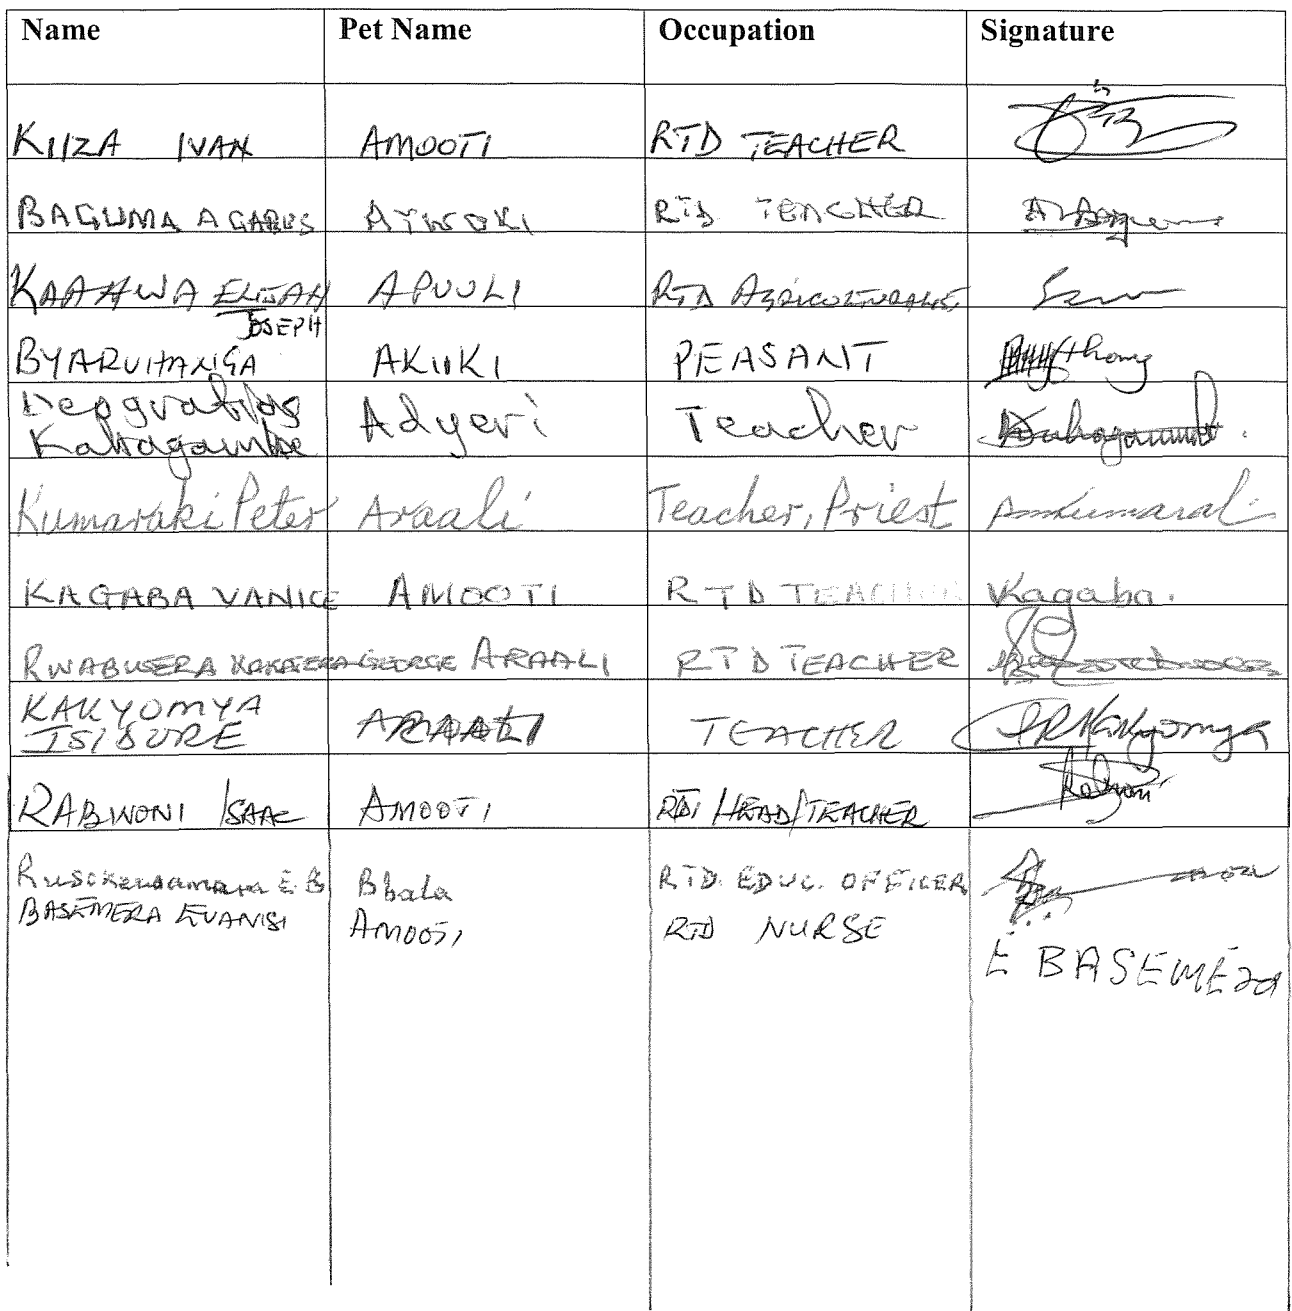 Name Pet Name Occupation Signature
KIIZA IVAN AMOOTI RTD TEACHER
BAGUMA AGABUS ATWOKI RTD TEACHER
KAAHWA ELIJAH APUULI RTD AGRICULTURALIST
JOSEPH
BYARUHANGA AKIIKI PEASANT
Deogratias
Kahagambe Adyeri Teacher
Kumaraki Peter Araali Teacher, Priest
KAGABA VANICE AMOOTI RTD TEACHER Kagaba.
RWABUSERA GEORGE ARAALI RTD TEACHER
KAKYOMYA
ISIDORE ARAALI TEACHER Kakyomya
RABWONI ISAAC AMOOTI RTD HEAD/TEACHER
E B Bbala RTD. EDUC. OFFICER
BASEMERA EVANISI AMOOTI RTD NURSE
E BASEMERa